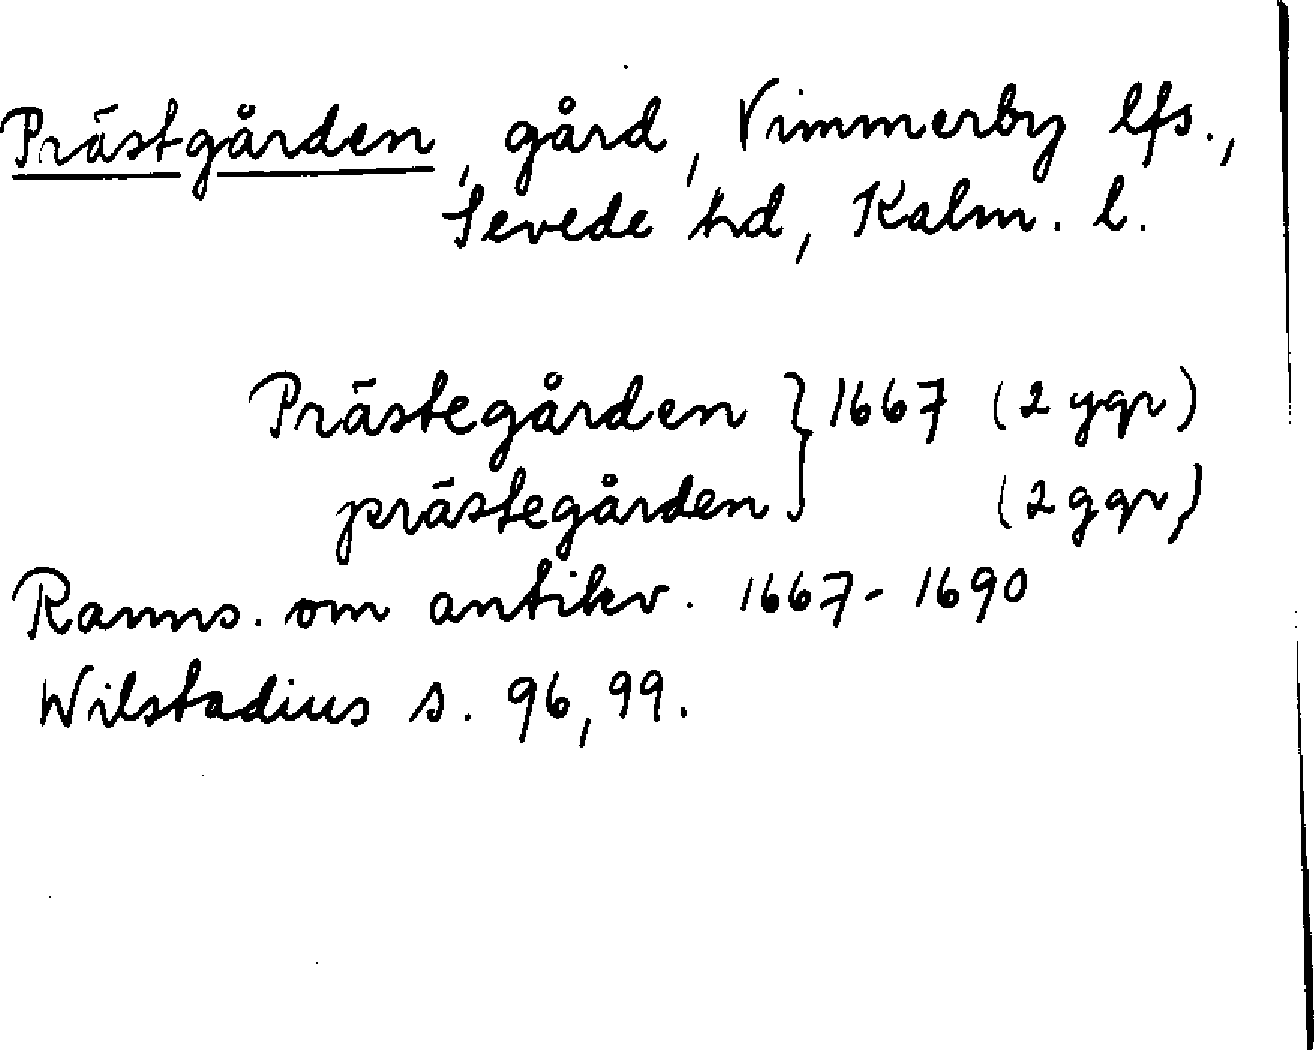 Prästgården, gård, Vimmerby lfs.,
Sevede hd, Kalm. l.
Prästegården } 1667 (2 ggr)
prästegården } (2 ggr)
Ranns. om antikv. 1667-1690
Wilstadius s. 96, 99.